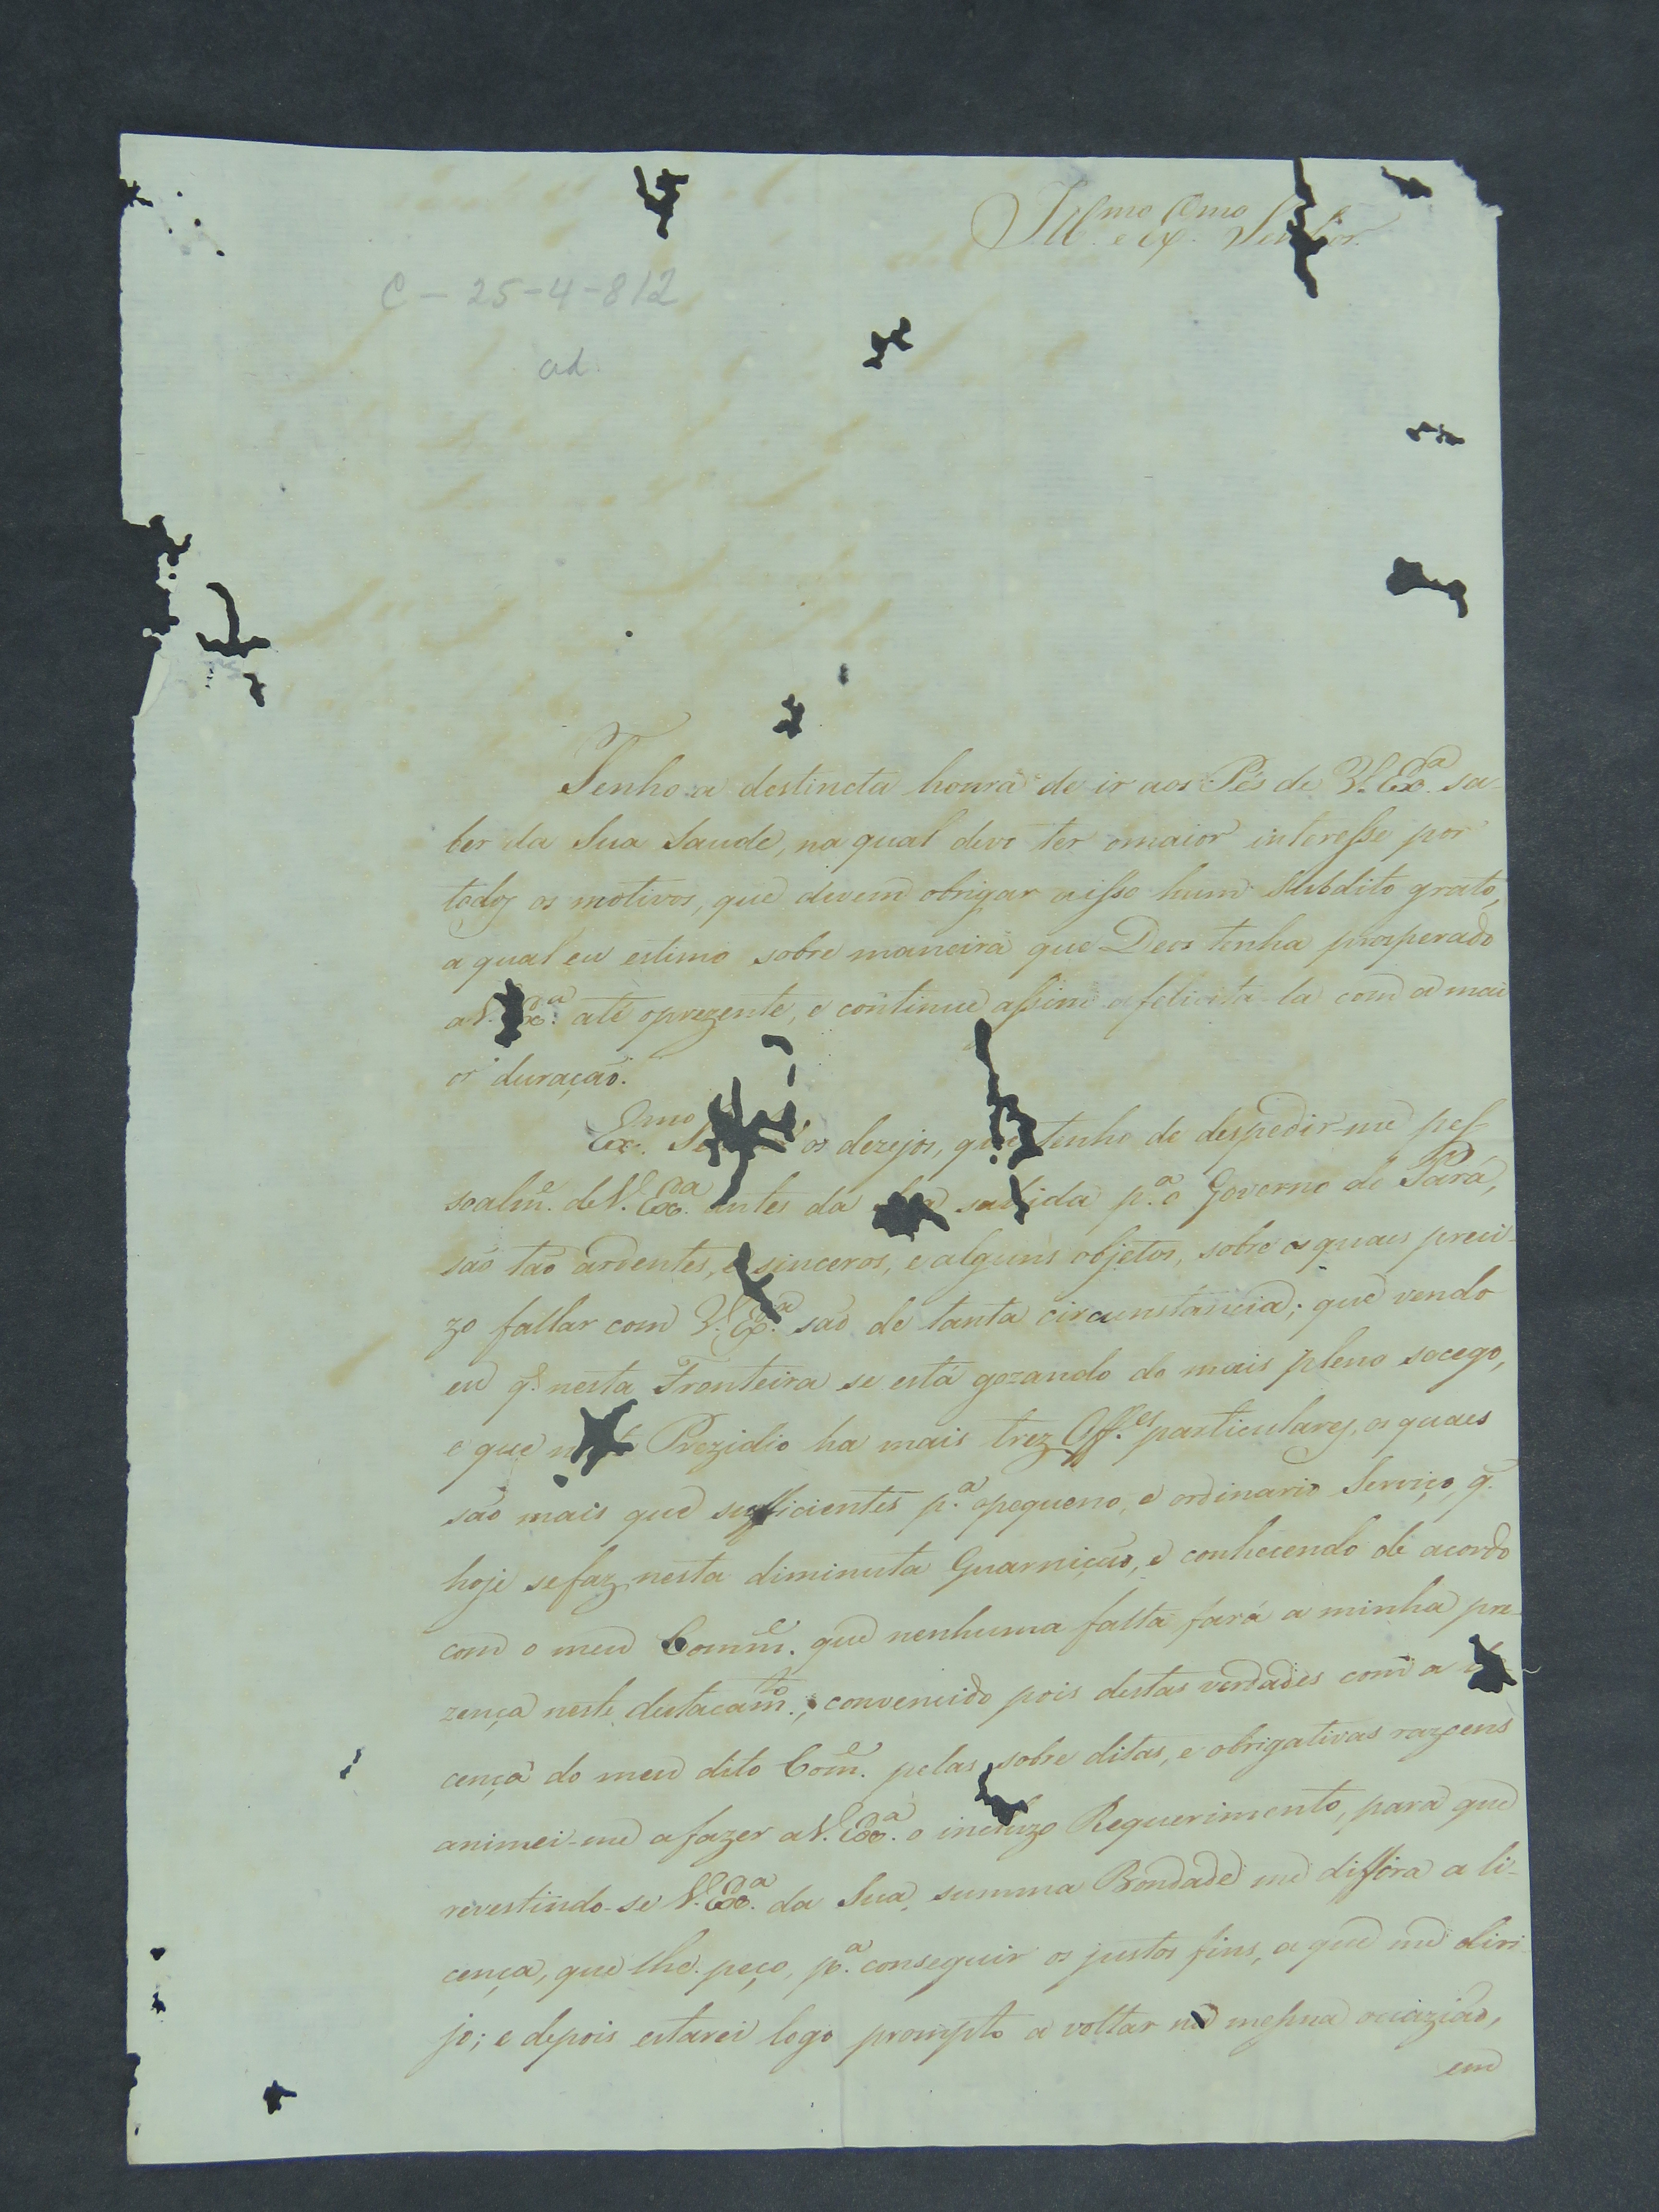 Ill.mo e Ex.mo Senhor.
C - 25-4-812
ad.
Tenho a destincta honra de ir aos Pés de V. Ex.a sa-
ber da Sua Saude, na qual devo ter omaior interesse por
todos os motivos, que devem obrigar aisso hum Subdito grato,
a qual eu estimo sobre maneira que Deos tenha prosperado
aV. Ex.a até oprezente, e continue assim a felicita-la com a mai
or duração.
Ex.mo os dezejos, que tenho de despedir-me pes-
soalm.e deV. Ex.a antes da sahida p.a o Governo do Pará,
são tão ardentes, e sinceros, e alguns objetos, sobre os quaes preci-
zo fallar com V. Ex.a são de tanta circunstáncia; que vendo
eu q. nesta Fronteira se está gozando do mais pleno socego,
e que Prezidio ha mais trez Off.es particulares, os quaes
são mais que sufficientes p.a opequeno, e ordinario Serviço, q.
hoje sefaz nesta diminuta Guarnição, e conhecendo de acordo
com o meu Comm.e que nenhuma falta fará a minha pre-
zença neste destacam.to, convencido pois destas verdades com a
cença do meu dito Com.e pelas sobre ditas, e obrigativas razoens
animei-me afazer aV. Ex.a o incluzo Requerimento, para que
revestindo-se V. Ex.a da Sua summa Bondade me diffira a li-
cença, que lhe peço, p.a conseguir os justos fins, a que me diri
jo; e depois estarei logo prompto a voltar na mesma ocazião,
em